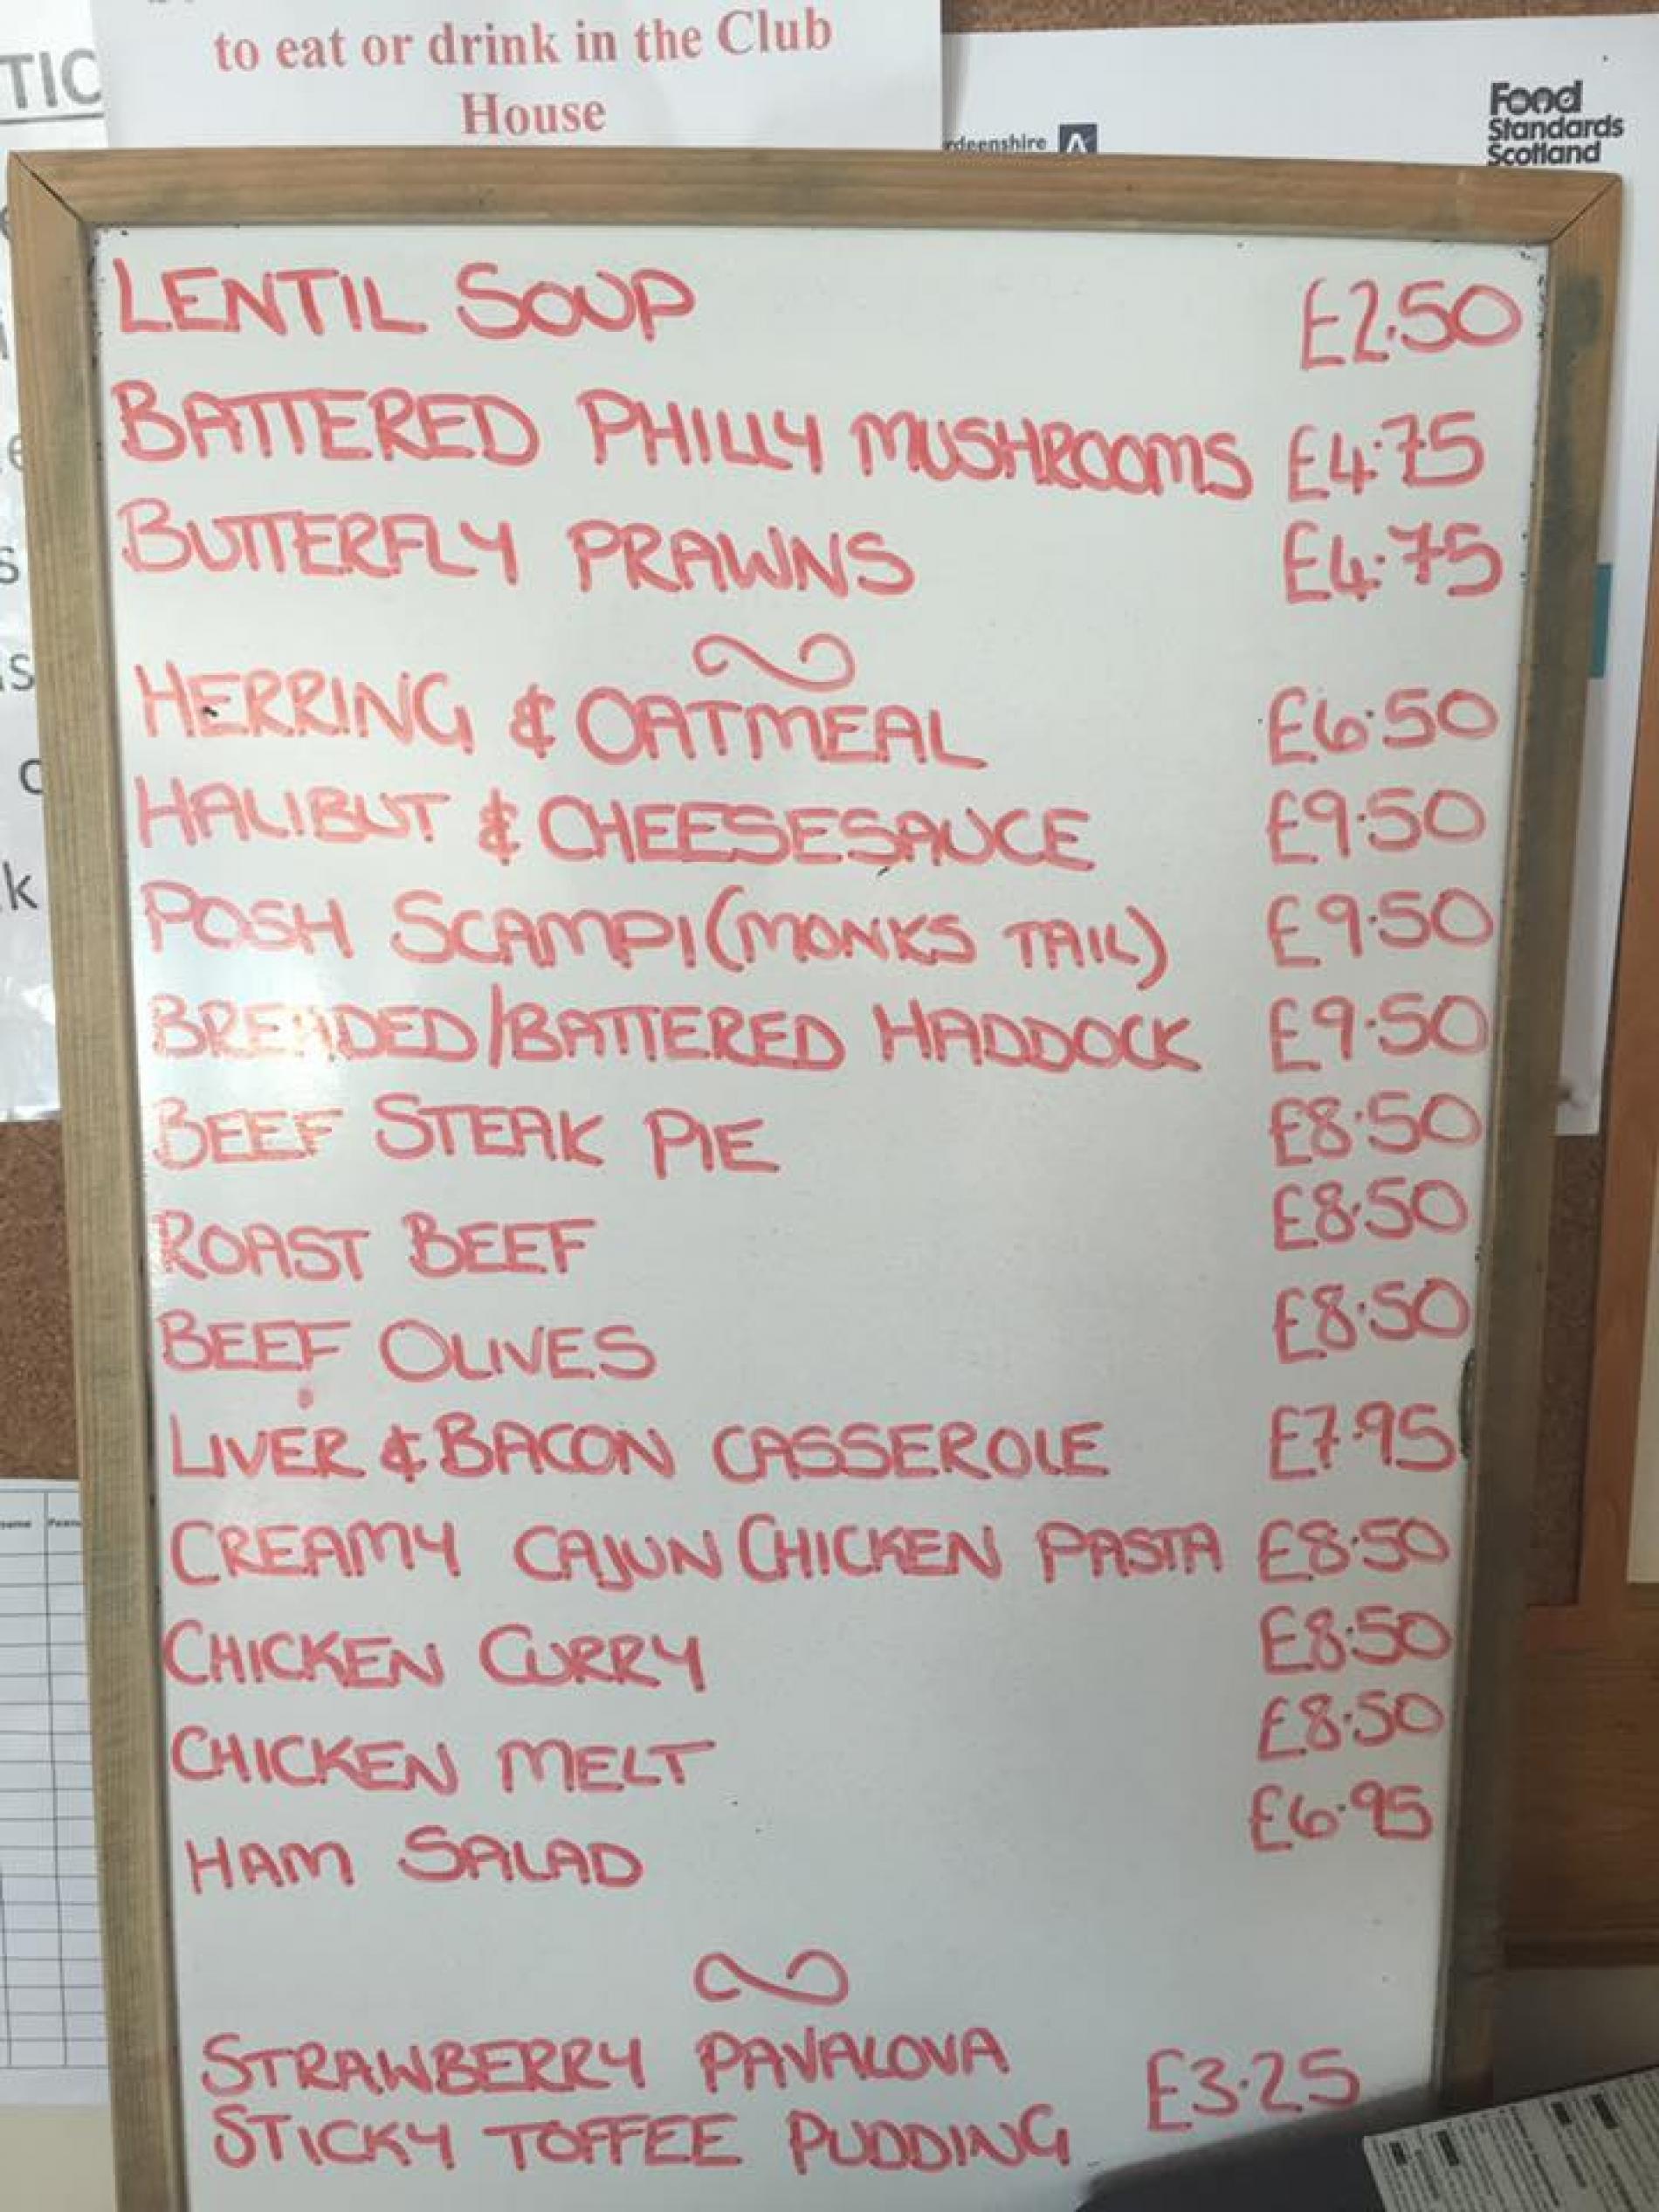 to eat or drink in the Club
House
TIC
rdeenshire
Food
Standards
Scotland
LENTIL SOUP £2.50
BATTERED PHILLY MUSHROOMS £4.75
BUTTERFLY PRAWNS £4.75
HERRING & OATMEAL £6.50
HALIBUT & CHEESESAUCE £9.50
POSH SCAMPI (MONKS TAIL) £9.50
BREADED/BATTERED HADDOCK £9.50
BEEF STEAK PIE £8.50
ROAST BEEF £8.50
BEEF OLIVES £8.50
LIVER & BACON CASSEROLE £7.95
CREAMY CAJUN CHICKEN PASTA £8.50
CHICKEN CURRY £8.50
CHICKEN MELT £8.50
HAM SALAD £6.95
STRAWBERRY PAVALOVA £3.25
STICKY TOFFEE PUDDING